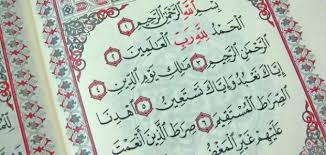 بِسْمِ اللَّهِ الرَّحْمَٰنِ الرَّحِيمِ ١
الْحَمْدُ لِلَّهِ رَبِّ الْعَالَمِينَ ٢
الرَّحْمَٰنِ الرَّحِيمِ ٣ مَالِكِ يَوْمِ الدِّينِ ٤
إِيَّاكَ نَعْبُدُ وَإِيَّاكَ نَسْتَعِينُ ٥ اهْدِنَا
الصِّرَاطَ الْمُسْتَقِيمَ ٦ صِرَاطَ الَّذِينَ أَنْعَمْتَ
عَلَيْهِمْ غَيْرِ الْمَغْضُ